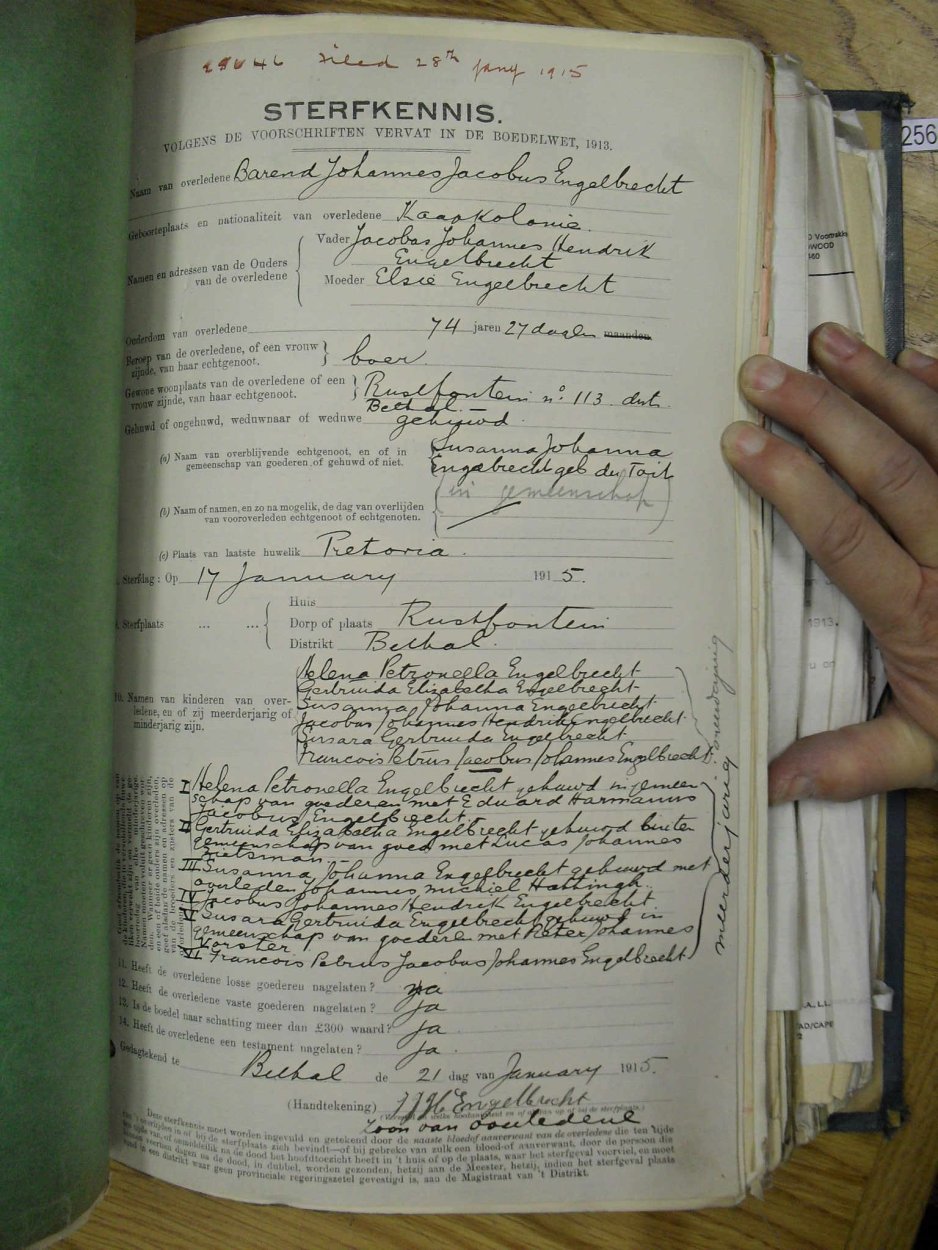 29646 Filed 28th Jany 1915
STERFKENNIS.
VOLGENS DE VOORSCHRIFTEN VERVAT IN DE BOEDELWET, 1913.
Naam van overledene Barend Johannes Jacobus Engelbrecht
Geboorteplaats en nationaliteit van overledene Kaapkolonie.
Namen en adressen van de Ouders van de overledene
Vader Jacobus Johannes Hendrik
Engelbrecht
Moeder Elsie Engelbrecht
Ouderdom van overledene 74 jaren 27 dagen maanden
Beroep van de overledene, of een vrouw
zijnde, van haar echtgenoot. boer
Gewone woonplaats van de overledene of een
vrouw zijnde, van haar echtgenoot. Rustfontein no 113 distr.
Bethal.
Gehuwd of ongehuwd, weduwnaar of weduwe gehuwd.
(a) Naam van overblijvende echtgenoot, en of in
gemeenschap van goederen of gehuwd of niet.
Susanna Johanna
Engelbrecht geb du Toit
(in gemeenschap)
(b) Naam of namen, en zo na mogelik, de dag van overlijden
van vooroverleden echtgenoot of echtgenoten.
(c) Plaats van laatste huwelik Pretoria.
Sterfdag: Op 17 January 1915.
9. Sterfplaats ... ...
Huis
Dorp of plaats Rustfontein
Distrikt Bethal.
10. Namen van kinderen van over-
ledene, en of zij meerderjarig of
minderjarig zijn.
Helena Petronella Engelbrecht
Gertruida Elizabetha Engelbrecht
Susanna Johanna Engelbrecht
Jacobus Johannes Hendrik Engelbrecht
Susara Gertruida Engelbrecht
Francois Petrus Jacobus Johannes Engelbrecht.
I Helena Petronella Engelbrecht gehuwd in gemeen
schap van goederen met Eduard Harmanus
Jacobus Engelbrecht.
II Gertruida Elizabetha Engelbrecht gehuwd buiten
gemeenschap van goed met Lucas Johannes
Rietsman.
III Susanna Johanna Engelbrecht gehuwd met
overleden Johannes Michiel Hattingh.
IV Jacobus Johannes Hendrik Engelbrecht.
V Susara Gertruida Engelbrecht gehuwd in
gemeenschap van goederen met Pieter Johannes
Vorster
VI Francois Petrus Jacobus Johannes Engelbrecht
meerderjarig
11. Heeft de overledene losse goederen nagelaten? ja
12. Heeft de overledene vaste goederen nagelaten? ja
13. Is de boedel naar schatting meer dan £300 waard? ja.
14. Heeft de overledene een testament nagelaten? ja.
Gedagtekend te Bethal de 21 dag van January 1915.
(Handtekening) JJH Engelbrecht
zoon van overledene
Deze sterfkennis moet worden ingevuld en getekend door de naaste bloedof aanverwant van de overledene die ten tijde
van 't overlijden in of bij de sterfplaats zich bevindt—of bij gebreke van zulk een bloed-of aanverwant, door de persoon die
ten tijde van, of onmiddellik na de dood het hoofdtoezicht heeft in 't huis of op de plaats, waar het sterfgeval voorviel, en moet
binnen veertien dagen na de dood, in dubbel, worden gezonden, hetzij aan de Meester, hetzij, indien het sterfgeval plaats
vond in een distrikt waar geen provinciale regeringszetel gevestigd is, aan de Magistraat van 't Distrikt.
256